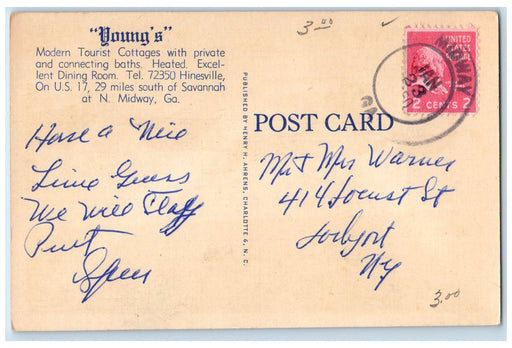 "Young's"
Modern Tourist Cottages with private
and connecting baths. Heated. Excel-
lent Dining Room. Tel. 72350 Hinesville,
On U.S. 17, 29 miles south of Savannah
at N. Midway, Ga.
Have a Nice
Time Guess
We Will Stay
Put
3.00
PUBLISHED BY HENRY H. AHRENS, CHARLOTTE 6, N. C.
POST CARD
MIDWAY
JAN
23
GA.
UNITED
STATES
POSTAGE
2 CENTS 2
Mr & Mrs Warner
414 Locust St
Lockport
NY
3.00